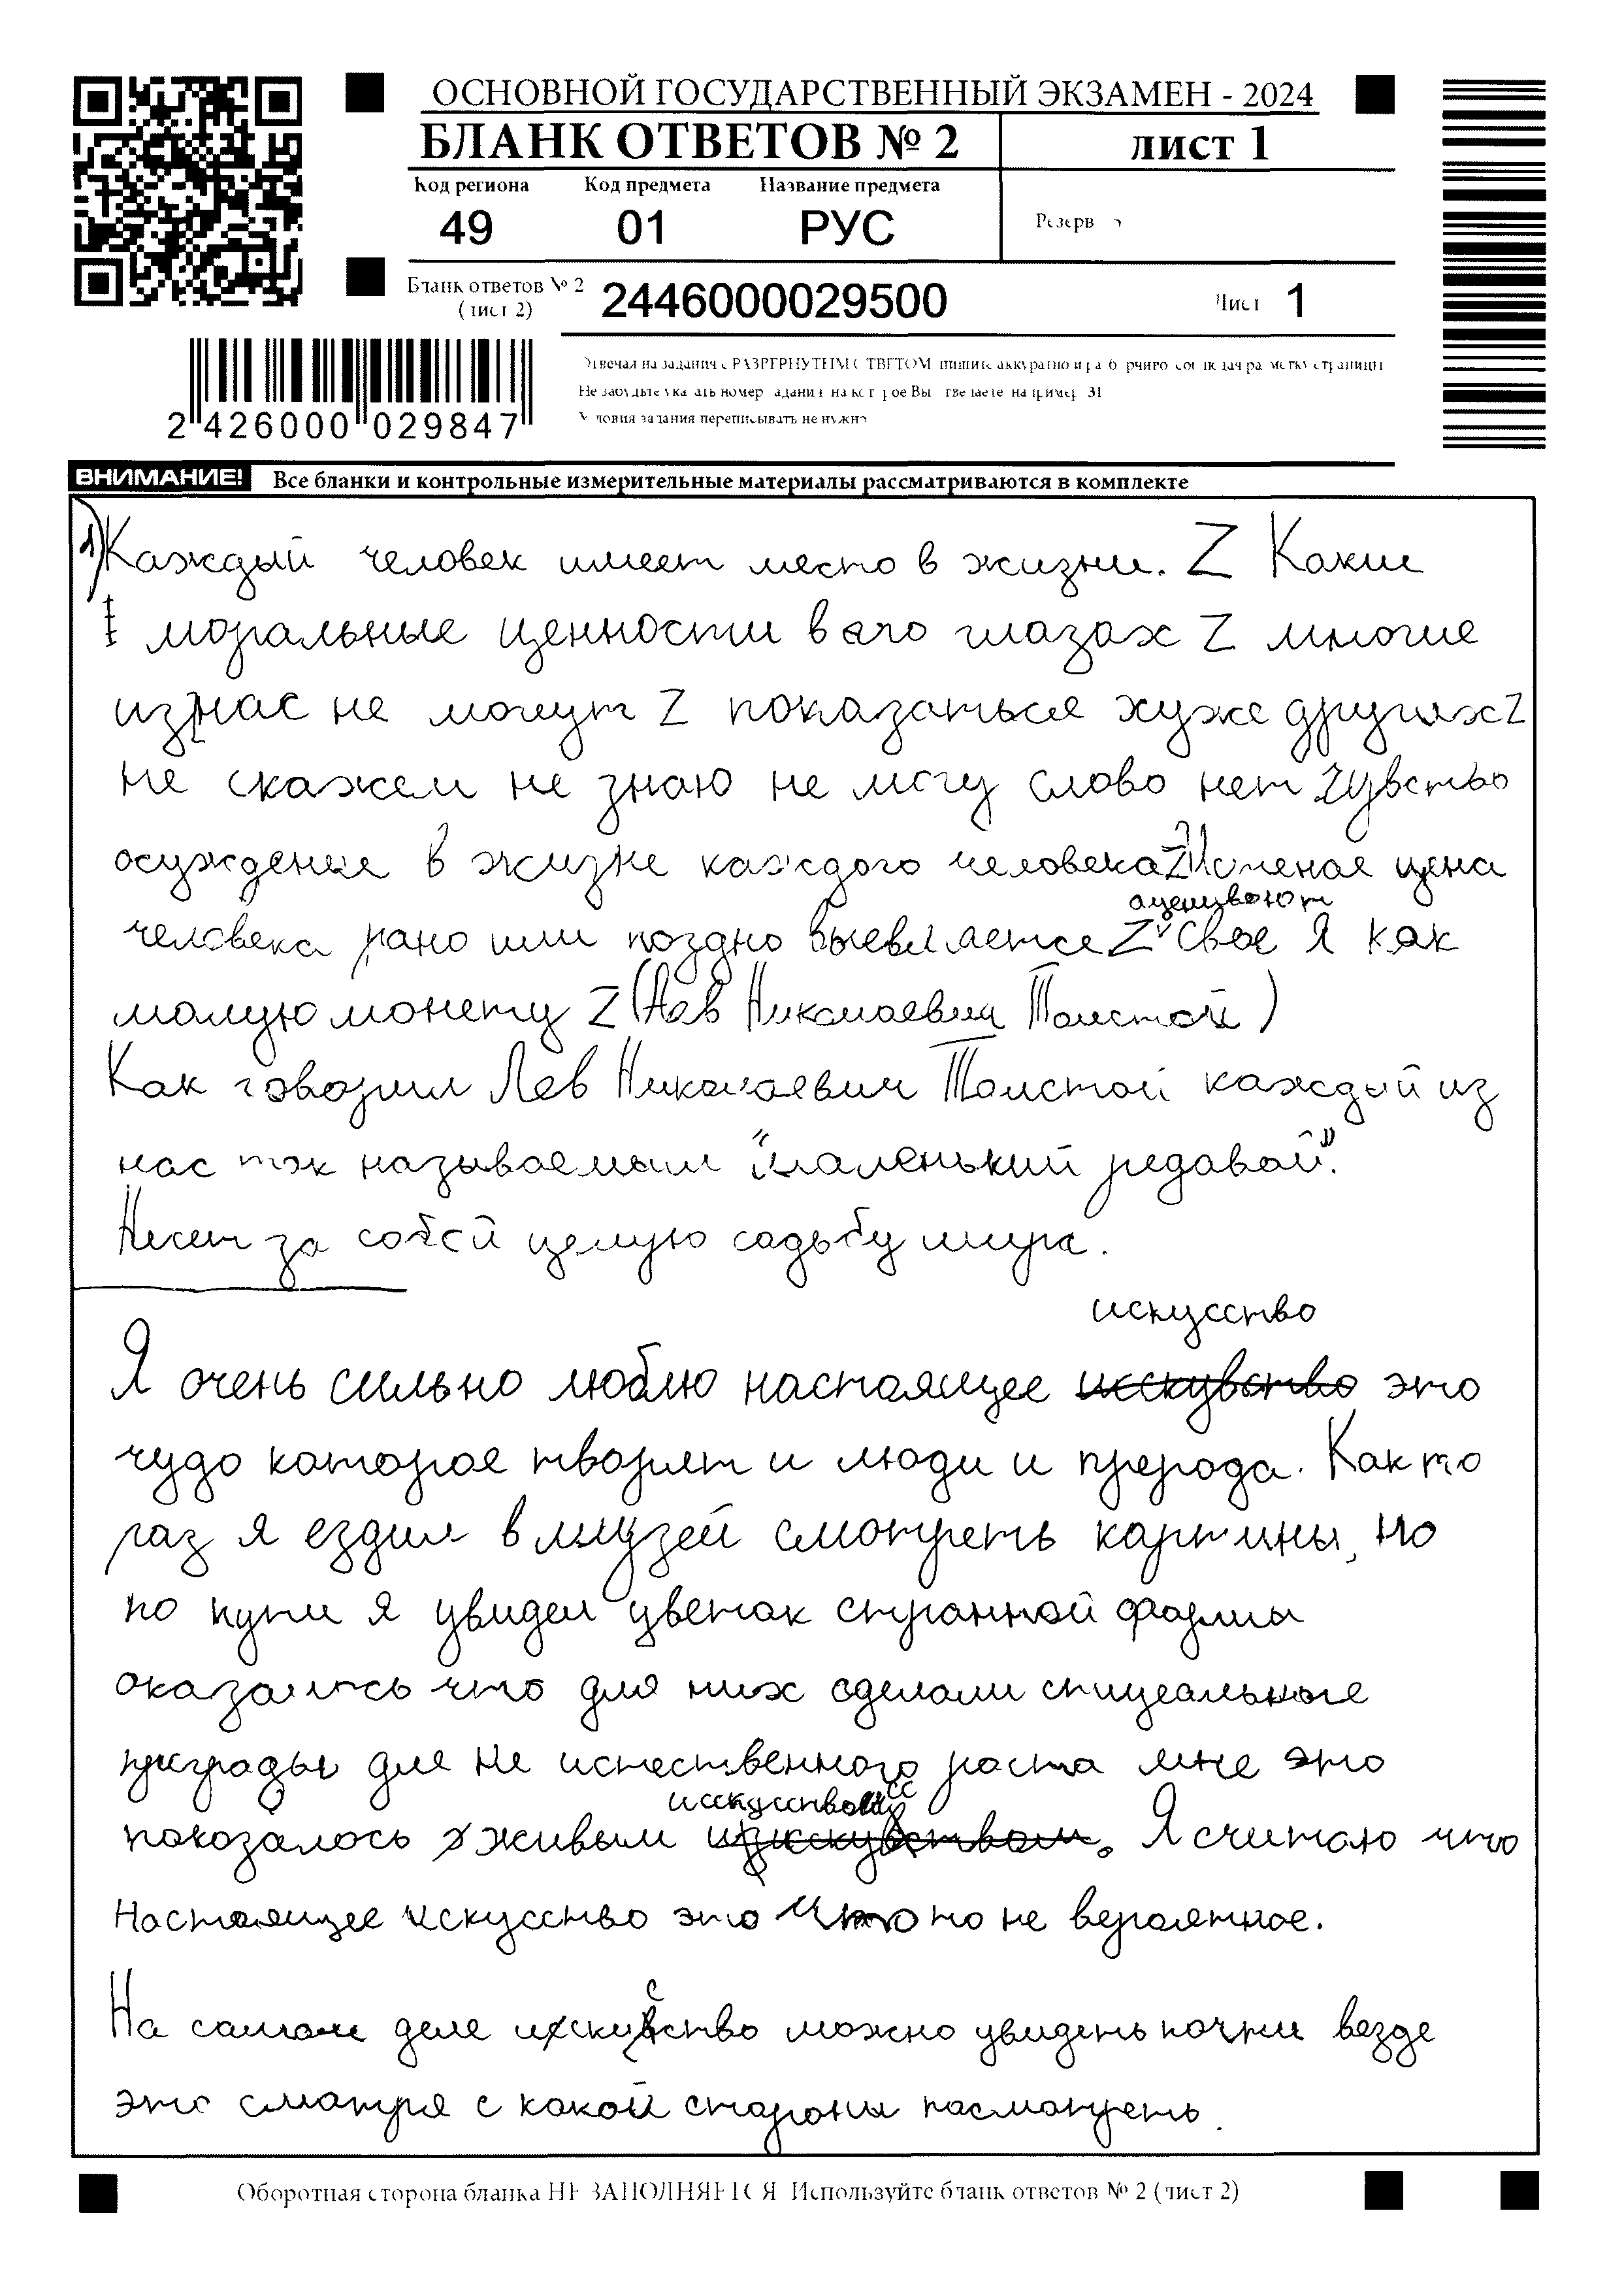 ОСНОВНОЙ ГОСУДАРСТВЕННЫЙ ЭКЗАМЕН - 2024
БЛАНК ОТВЕТОВ № 2
лист 1
Код региона Код предмета Название предмета
49 01 РУС
Резерв
Бланк ответов № 2
(лист 2)
2446000029500
Лист 1
2 426000 029847
Условия задания переписывать не нужно
ВНИМАНИЕ! Все бланки и контрольные измерительные материалы рассматриваются в комплекте
1) Каждый человек имеет место в жизни. Z Какие
моральные ценности в его глазах Z многие
из нас не могут Z показаться хуже других Z
не скажем не знаю не могу слово нет Чувство
осуждение в жизне каждого человека Z цена
оценивают
человека рано или поздно Z Свое Я как
малую монету Z (Лев Николаевич Толстой)
Как говорил Лев Николаевич Толстой каждый из
нас так называемый "маленький редавой".
Несет за собой целую садьбу мира.
искусство
Я очень сильно люблю настоящее исскувство это
чудо которое творят и люди и прерода. Как то
раз я ездил в музей смотреть картины, но
по пути я увидел цветок странной формы
оказалось что для них сделали спицеальные
приграды для не истественного роста мне это
исскусством
показалось живым Я считаю что
Настоящее искусство это что то не вероятное.
На самом деле искусство можно увидеть почти везде
это смотря с какой стороны посмотреть.
Оборотная сторона бланка НЕ ЗАПОЛНЯЕТСЯ. Используйте бланк ответов № 2 (лист 2)